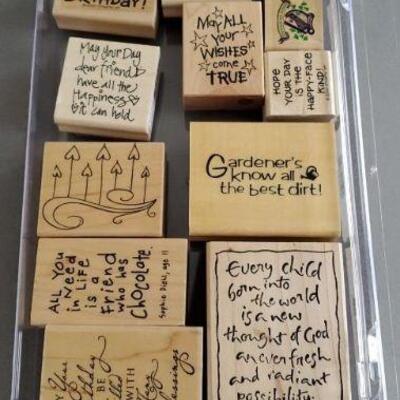 BIRTHDAY!
May ALL
Your
WISHES
come
TRUE
May your Day
dear friend
have all the
Happiness
it can hold
HOPE
YOUR DAY
IS THE
HAPPY-FACE
KIND!
Gardener's
know all
the best dirt!
ALL YOU
Need
in Life
is a
friend
who has
Chocolate.
Every child
born into
the world
is a new
thought of God
an ever fresh
and radiant
possibility.
You
BE
WITH
Blessings